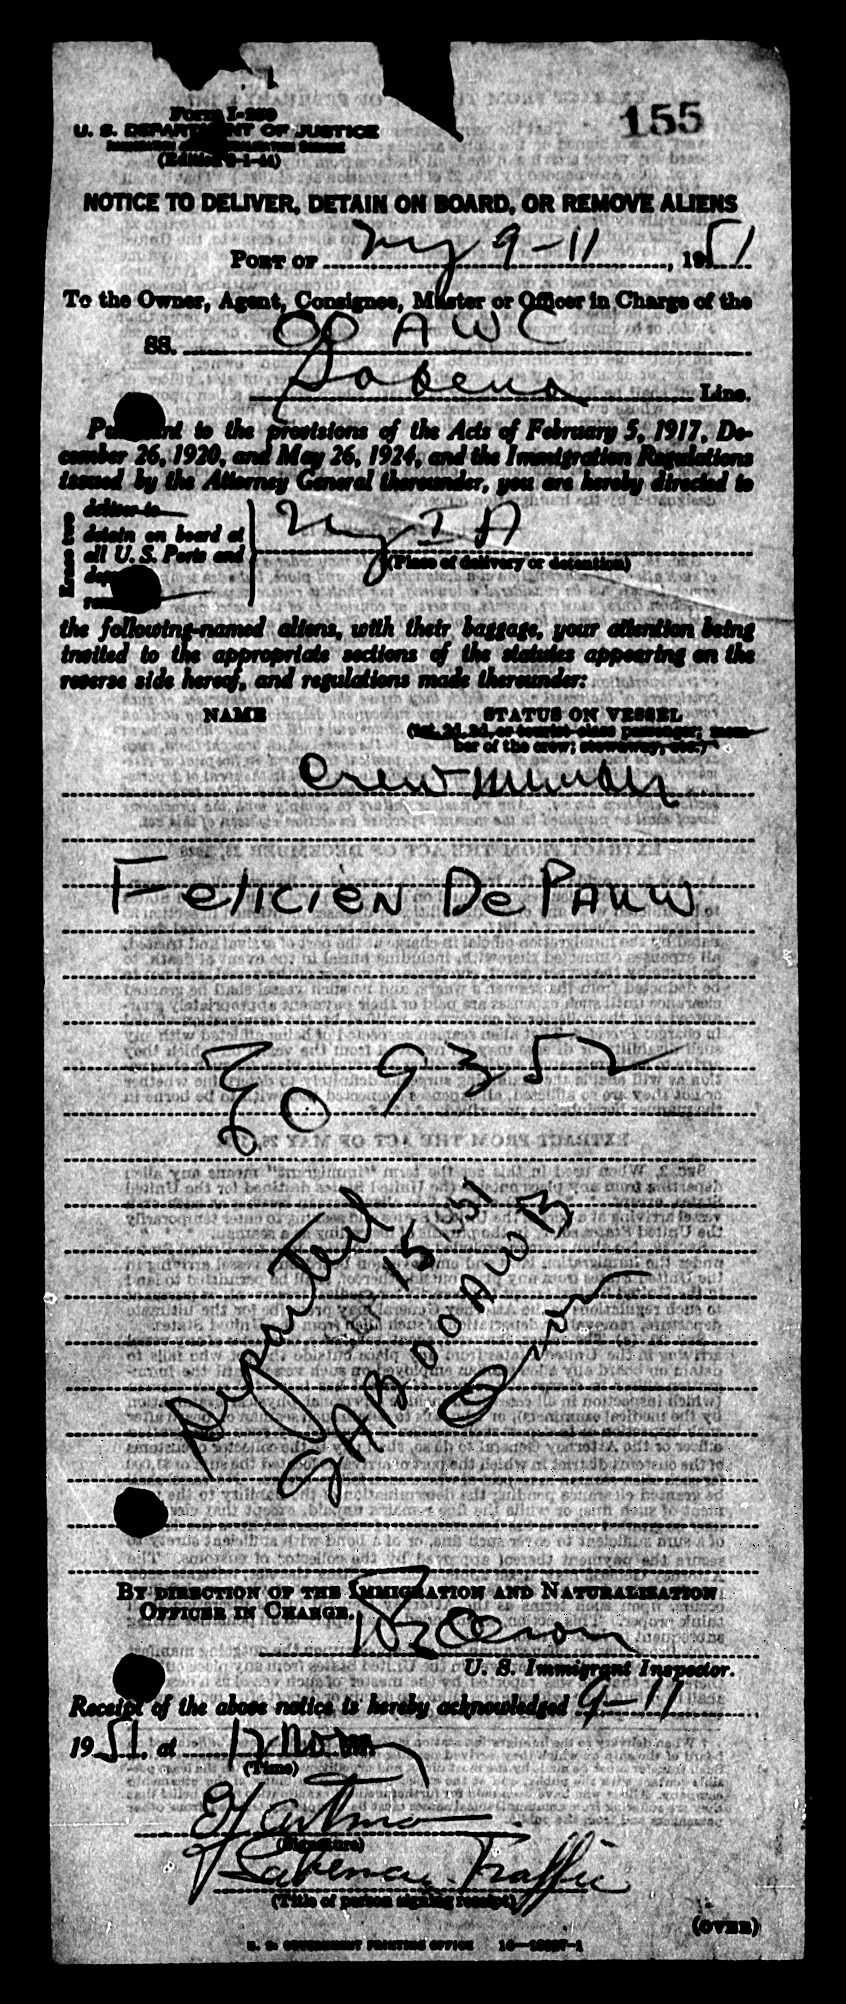 155
Form I-259
U. S. DEPARTMENT OF JUSTICE
IMMIGRATION AND NATURALIZATION SERVICE
NOTICE TO DELIVER, DETAIN ON BOARD, OR REMOVE ALIENS
PORT OF NY 9-11, 1951
To the Owner, Agent, Consignee, Master or Officer in Charge of the
SS. OO AWC
Sabena Line.
Pursuant to the provisions of the Acts of February 5, 1917, De-
cember 26, 1920, and May 26, 1924, and the Immigration Regulations
issued by the Attorney General thereunder, you are hereby directed to
deliver to
detain on board at
all U. S. Ports and
NY IA
(Place of delivery or detention)
the following-named aliens, with their baggage, your attention being
invited to the appropriate sections of the statutes appearing on the
reverse side hereof, and regulations made thereunder:
NAME STATUS ON VESSEL
(1st, 2d, 3d, or tourist-class passenger; mem-
ber of the crew; stowaway, etc.)
Crew member
FELICIEN De PAUW
Departed
15/51
SAB OOAWB
BY DIRECTION OF THE IMMIGRATION AND NATURALIZATION
OFFICER IN CHARGE.
U. S. Immigrant Inspector.
Receipt of the above notice is hereby acknowledged 9-11
1951, at 12 Noon
(Time)
(Signature)
Sabena Traffic
(Title of person signing receipt)
(OVER)
U. S. GOVERNMENT PRINTING OFFICE